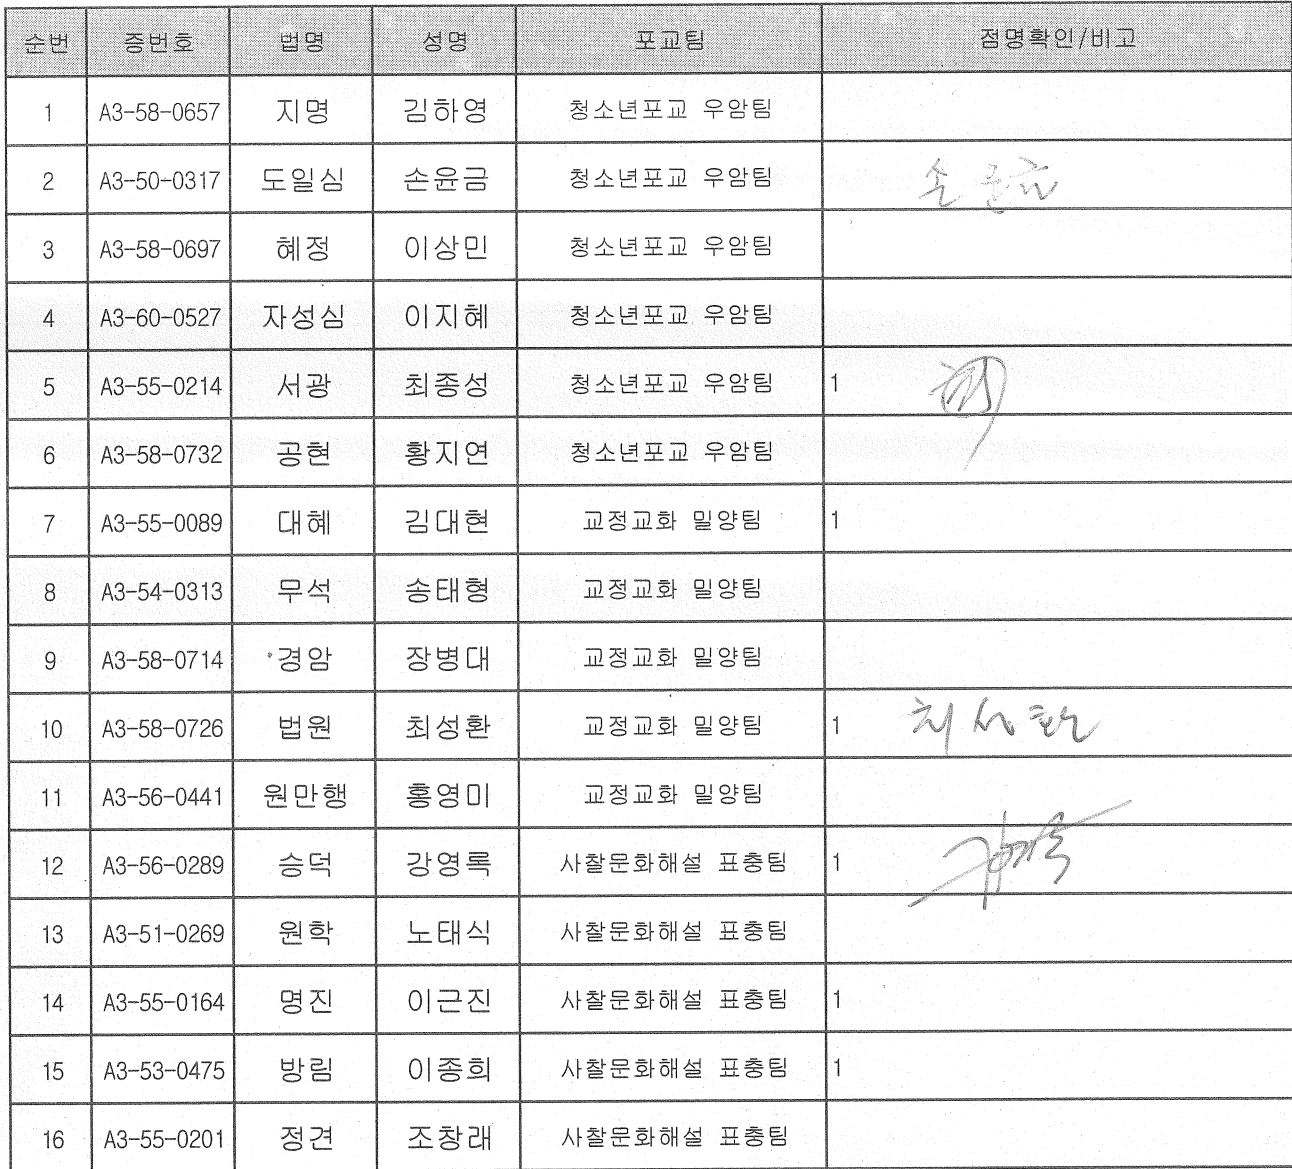 순번 증번호 법명 성명 포교팀 점명확인/비고
1 A3-58-0657 지명 김하영 청소년포교 우암팀
2 A3-50-0317 도일심 손윤금 청소년포교 우암팀 손윤금
3 A3-58-0697 혜정 이상민 청소년포교 우암팀
4 A3-60-0527 자성심 이지혜 청소년포교 우암팀
5 A3-55-0214 서광 최종성 청소년포교 우암팀 1
6 A3-58-0732 공현 황지연 청소년포교 우암팀
7 A3-55-0089 대혜 김대현 교정교화 밀양팀 1
8 A3-54-0313 무석 송태형 교정교화 밀양팀
9 A3-58-0714 경암 장병대 교정교화 밀양팀
10 A3-58-0726 법원 최성환 교정교화 밀양팀 1 최성환
11 A3-56-0441 원만행 홍영미 교정교화 밀양팀
12 A3-56-0289 승덕 강영록 사찰문화해설 표충팀 1
13 A3-51-0269 원학 노태식 사찰문화해설 표충팀
14 A3-55-0164 명진 이근진 사찰문화해설 표충팀 1
15 A3-53-0475 방림 이종희 사찰문화해설 표충팀 1
16 A3-55-0201 정견 조창래 사찰문화해설 표충팀